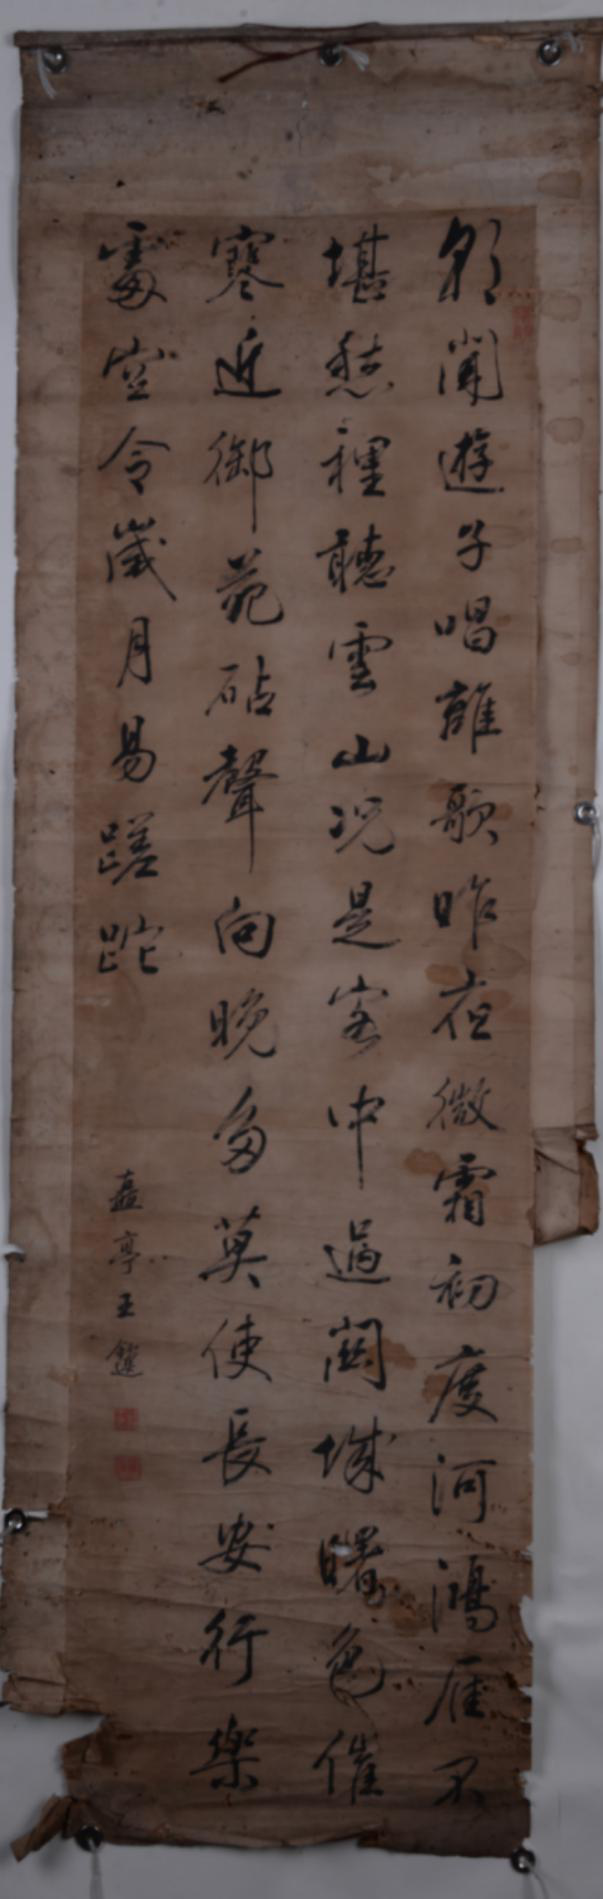 朝聞遊子唱離歌昨夜微霜初度河鴻雁不
堪愁裡聽雲山況是客中過關城曙色催
寒近御苑砧聲向晚多莫使長安行樂
處空令歲月易蹉跎
亭王